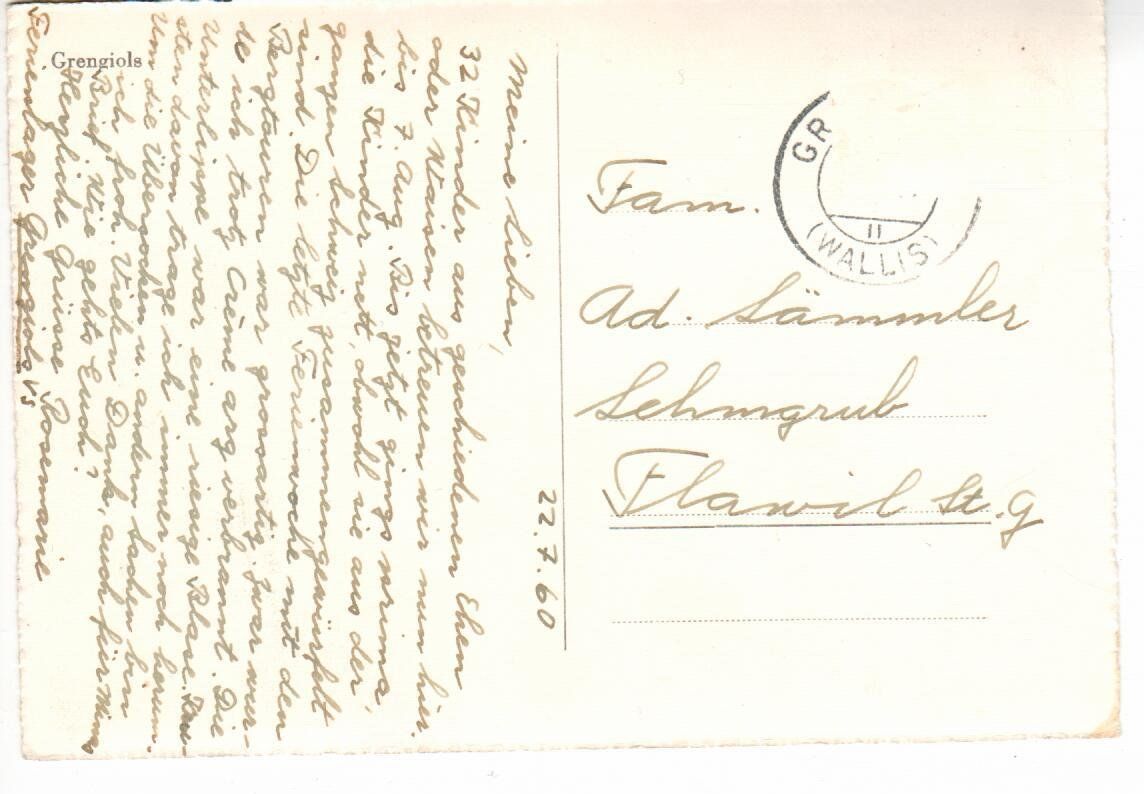 Grengiols
22.7.60
Meine Lieben,
32 Kinder aus geschiedenen Ehen
oder Waisen betreuen wir nun hier
bis 7. Aug. Bis jetzt gings prima
die Kinder nett, obwohl sie aus der
ganzen Schweiz zusammengewürfelt
sind. Die letzte Ferienwoche mit den
Bergtouren war grossartig. Zwar wur-
de ich trotz Crème arg verbrannt. Die
Unterlippe war eine riesige Blase. Kru-
sten davon trage ich immer noch herum.
Um die Übersocken u. andern Sachen bin
ich froh. Vielen Dank, auch für Mimis
Brief. Wie gehts Euch?
Herzliche Grüsse Rosemarie
Ferienlager Grengiols VS
GR
II
(WALLIS)
Fam.
Ad. Sämmler
Lehmgrub
Flawil St. G